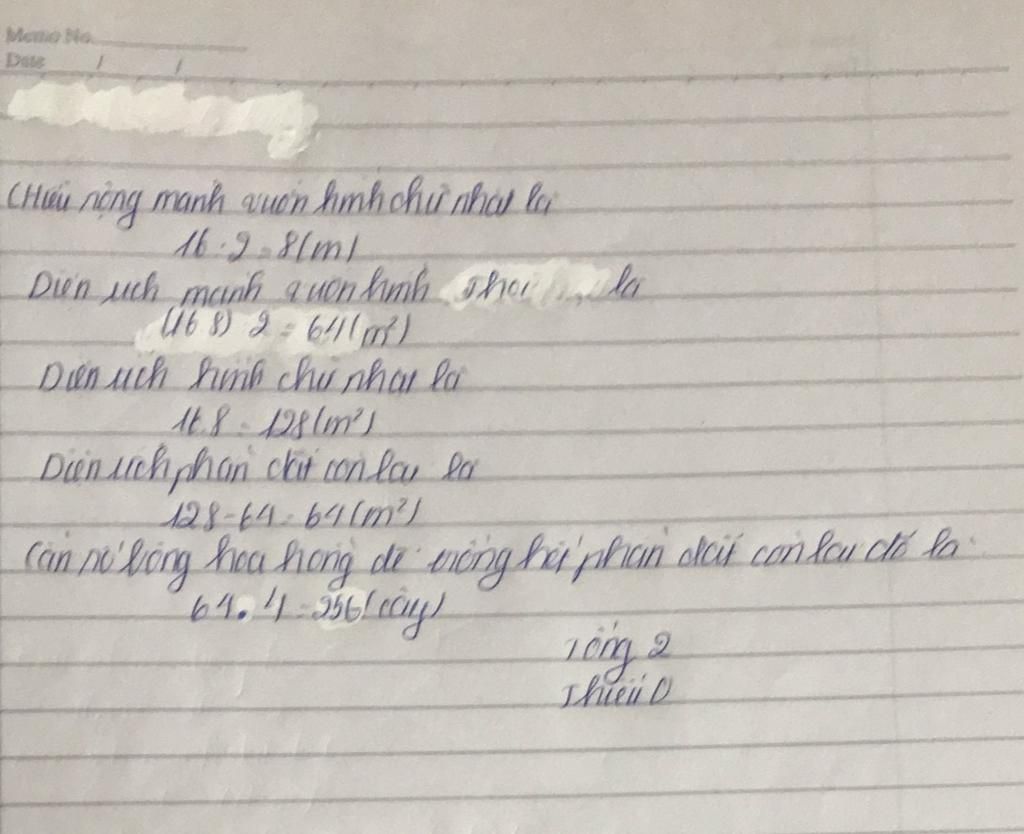 Memo No.
Date / /
Chiều rộng mảnh vườn hình chữ nhật là
16:2=8(m)
Diện tích mảnh vườn hình thoi là
(16.8):2=64(m²)
Diện tích hình chữ nhật là
16.8=128(m²)
Diện tích phần đất còn lại là
128-64=64(m²)
Cần số bông hoa hồng để trồng hết phần đất còn lại đó là:
64.4=256(cây)
Tổng 2
Thiếu 0